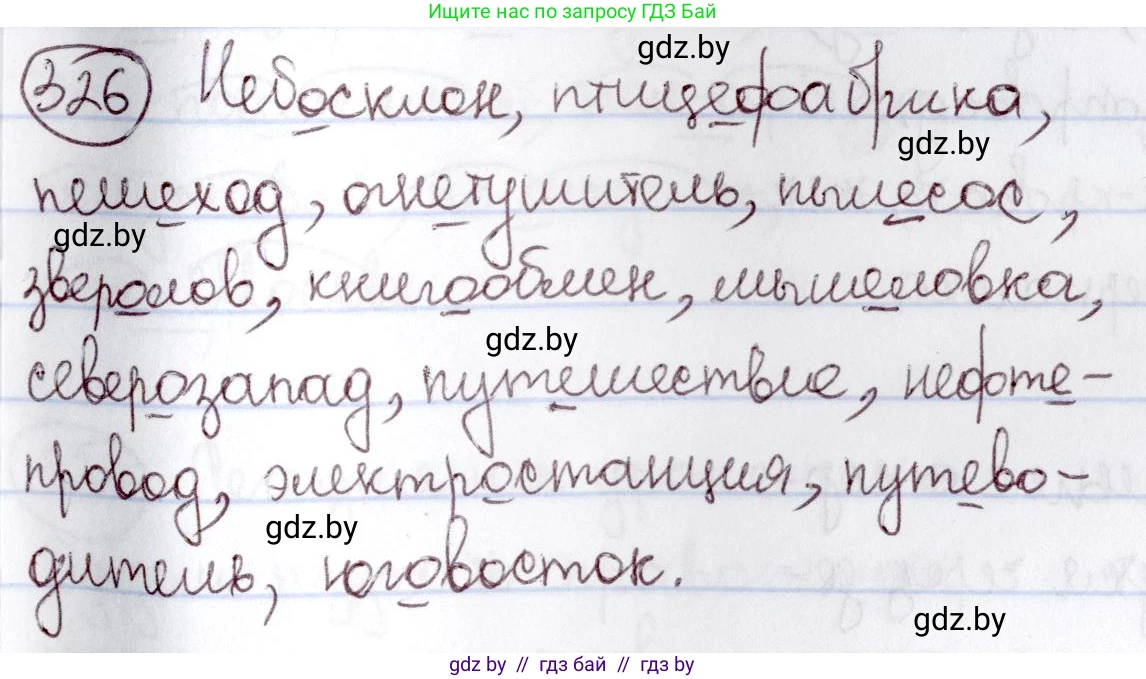 Ищите нас по запросу ГДЗ Бай
gdz.by
326 Небосклон, птицефабрика,
gdz.by
пешеход, огнетушитель, пылесос,
gdz.by
зверолов, книгообмен, мышеловка,
gdz.by
северозапад, путешествие, нефте-
провод, электростанция, путево-
gdz.by
дитель, юговосток.
gdz.by
gdz by // гдз бай // гдз by